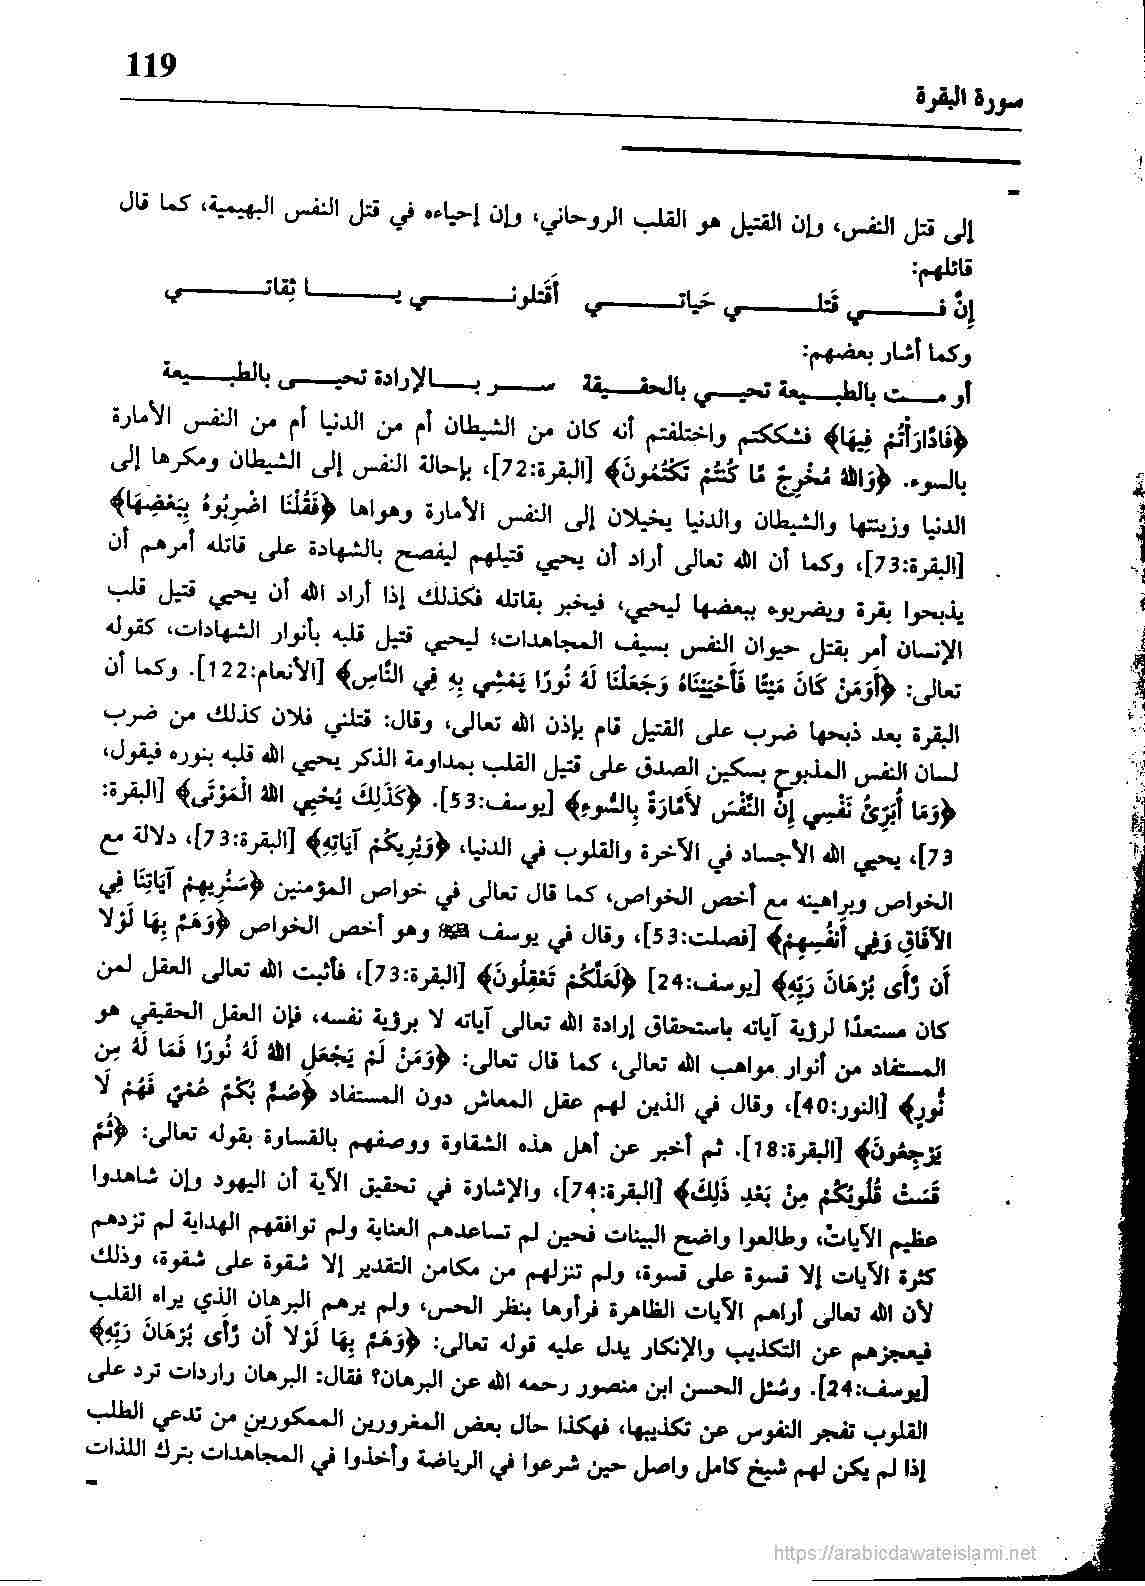 119
سورة البقرة
إلى قتل النفس، وإن القتيل هو القلب الروحاني، وإن إحياءه في قتل النفس البهيمية، كما قال
قائلهم:
إنَّ فـي قَتلـي حَياتـي أَقَتلونـي يـا ثِقاتـي
وكما أشار بعضهم:
أو مـت بالطبـيعة تحيـي بالحقـيقة سـر بـالإرادة تحيـى بالطبـيعة
﴿فَادَّارَأْتُمْ فِيهَا﴾ فشككتم واختلفتم أنه كان من الشيطان أم من الدنيا أم من النفس الأمارة
بالسوء. ﴿وَاللهُ مُخْرِجٌ مَّا كُنتُمْ تَكْتُمُونَ﴾ [البقرة:72]، بإحالة النفس إلى الشيطان ومكرها إلى
الدنيا وزينتها والشيطان والدنيا يخيلان إلى النفس الأمارة وهواها ﴿فَقُلْنَا اضْرِبُوهُ بِبَعْضِهَا﴾
[البقرة:73]، وكما أن الله تعالى أراد أن يحيي قتيلهم ليفصح بالشهادة على قاتله أمرهم أن
يذبحوا بقرة ويضربوه ببعضها ليحيي، فيخبر بقاتله فكذلك إذا أراد الله أن يحيي قتيل قلب
الإنسان أمر بقتل حيوان النفس بسيف المجاهدات؛ ليحيي قتيل قلبه بأنوار الشهادات، كقوله
تعالى: ﴿أَوَمَنْ كَانَ مَيْتًا فَأَحْيَيْنَاهُ وَجَعَلْنَا لَهُ نُورًا يَمْشِي بِهِ فِي النَّاسِ﴾ [الأنعام:122]. وكما أن
البقرة بعد ذبحها ضرب على القتيل قام بإذن الله تعالى، وقال: قتلني فلان كذلك من ضرب
لسان النفس المذبوح بسكين الصدق على قتيل القلب بمداومة الذكر يحيي الله قلبه بنوره فيقول،
﴿وَمَا أُبَرِّئُ نَفْسِي إِنَّ النَّفْسَ لأَمَّارَةٌ بِالسُّوءِ﴾ [يوسف:53]. ﴿كَذَلِكَ يُحْيِي اللهُ الْمَوْتَى﴾ [البقرة:
73]، يحيي الله الأجساد في الآخرة والقلوب في الدنيا، ﴿وَيُرِيكُمْ آيَاتِهِ﴾ [البقرة:73]، دلالة مع
الخواص وبراهينه مع أخص الخواص، كما قال تعالى في خواص المؤمنين ﴿سَنُرِيهِمْ آيَاتِنَا فِي
الآفَاقِ وَفِي أَنفُسِهِمْ﴾ [فصلت:53]، وقال في يوسف وهو أخص الخواص ﴿وَهَمَّ بِهَا لَوْلا
أَن رَّأَى بُرْهَانَ رَبِّهِ﴾ [يوسف:24] ﴿لَعَلَّكُمْ تَعْقِلُونَ﴾ [البقرة:73]، فأثبت الله تعالى العقل لمن
كان مستعدًا لرؤية آياته باستحقاق إرادة الله تعالى آياته لا برؤية نفسه، فإن العقل الحقيقي هو
المستفاد من أنوار مواهب الله تعالى، كما قال تعالى: ﴿وَمَنْ لَمْ يَجْعَلِ اللهُ لَهُ نُورًا فَمَا لَهُ مِن
نُّورٍ﴾ [النور:40]، وقال في الذين لهم عقل المعاش دون المستفاد ﴿صُمٌّ بُكْمٌ عُمْيٌ فَهُمْ لَا
يَرْجِعُونَ﴾ [البقرة:18]. ثم أخبر عن أهل هذه الشقاوة ووصفهم بالقساوة بقوله تعالى: ﴿ثُمَّ
قَسَتْ قُلُوبُكُمْ مِنْ بَعْدِ ذَلِكَ﴾ [البقرة:74]، والإشارة في تحقيق الآية أن اليهود وإن شاهدوا
عظيم الآيات، وطالعوا واضح البينات فحين لم تساعدهم العناية ولم توافقهم الهداية لم تزدهم
كثرة الآيات إلا قسوة على قسوة، ولم تنزلهم من مكامن التقدير إلا شقوة على شقوة، وذلك
لأن الله تعالى أراهم الآيات الظاهرة فرأوها بنظر الحس، ولم يرهم البرهان الذي يراه القلب
فيعجزهم عن التكذيب والإنكار يدل عليه قوله تعالى: ﴿وَهَمَّ بِهَا لَوْلا أَن رَّأَى بُرْهَانَ رَبِّهِ﴾
[يوسف:24]. وسُئل الحسن ابن منصور رحمه الله عن البرهان؟ فقال: البرهان واردات ترد على
القلوب تفجر النفوس عن تكذيبها، فهكذا حال بعض المغرورين الممكورين من تدعي الطلب
إذا لم يكن لهم شيخ كامل واصل حين شرعوا في الرياضة وأخذوا في المجاهدات بترك اللذات
https://arabicdawateislami.net